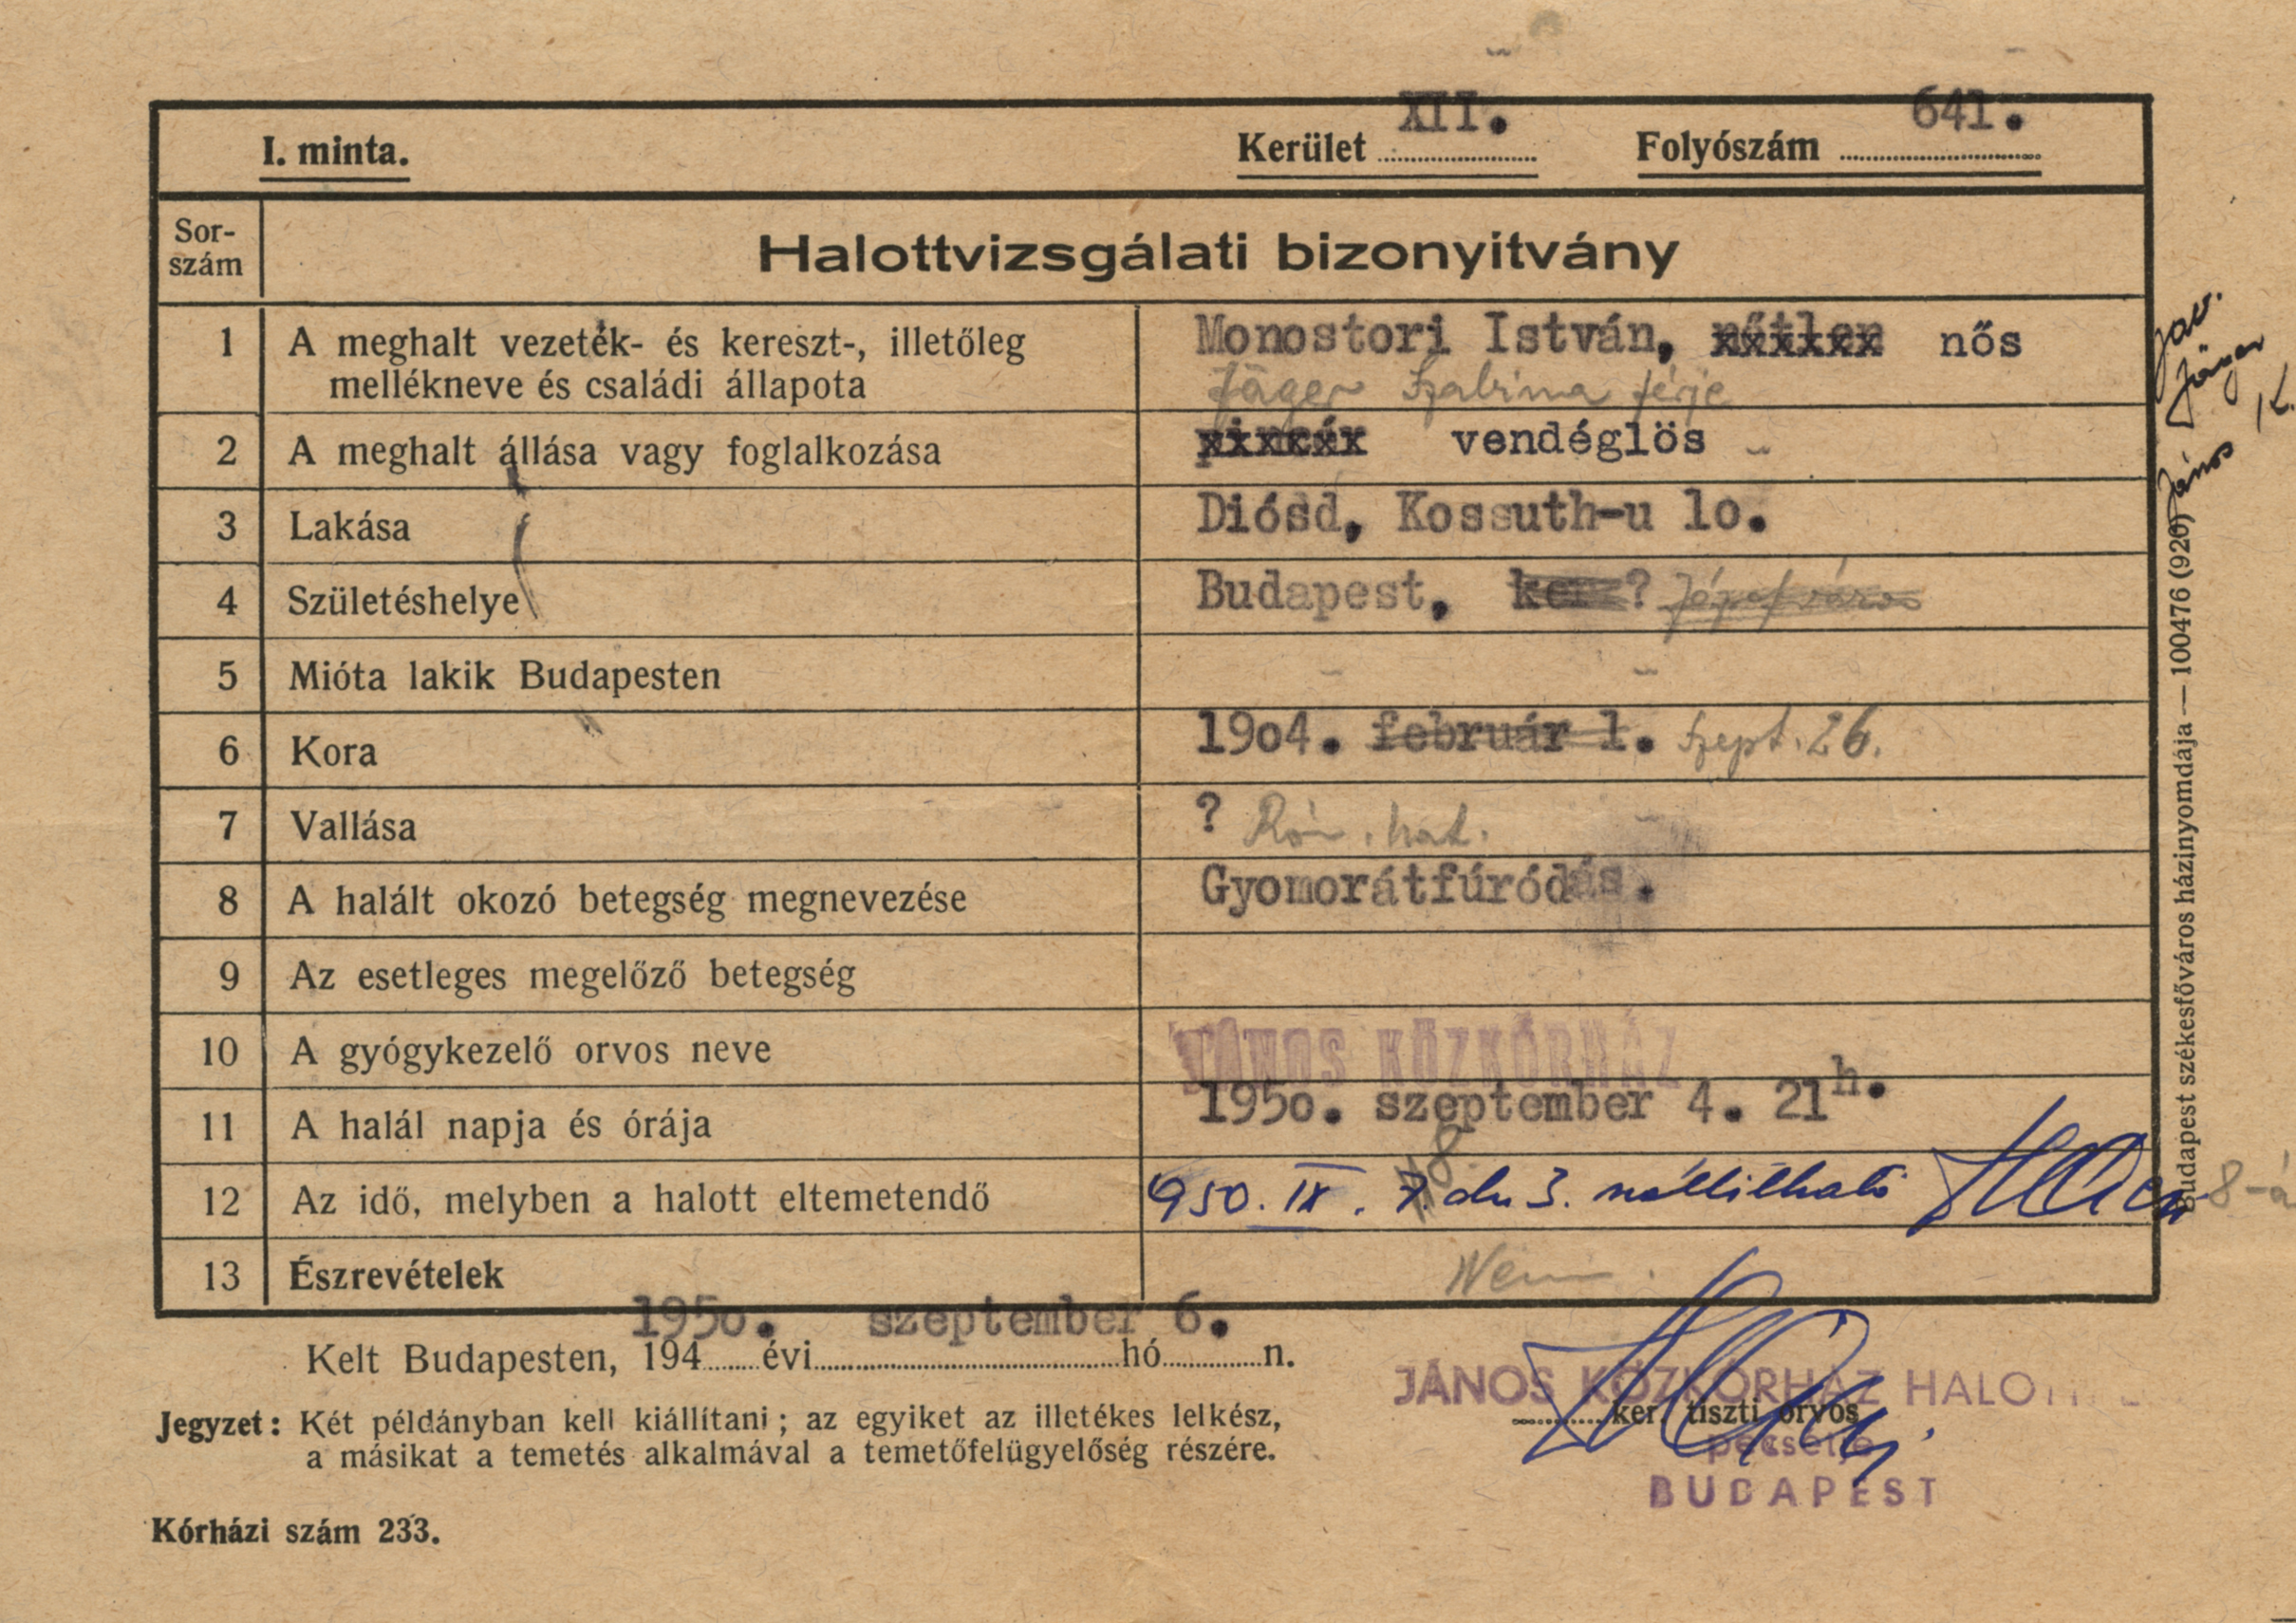 XII. 641.
I. minta. Kerület Folyószám
Sor-
szám
Halottvizsgálati bizonyitvány
1 A meghalt vezeték- és kereszt-, illetőleg mellékneve és családi állapota
Monostori István, nőtlen nős
Jäger Szabina férje
2 A meghalt állása vagy foglalkozása pincér vendéglös
3 Lakása Diósd, Kossuth-u lo.
4 Születéshelye Budapest, ker ? Józsefváros
5 Mióta lakik Budapesten
6 Kora 19o4. február 1. Szept. 26.
7 Vallása ? Róm. kat.
8 A halált okozó betegség megnevezése Gyomorátfúródás.
9 Az esetleges megelőző betegség
10 A gyógykezelő orvos neve JÁNOS KÖZKÓRHÁZ
11 A halál napja és órája 195o. szeptember 4. 21h.
12 Az idő, melyben a halott eltemetendő 1950. IX. 7. 8 du 3. szállítható 8-á
13 Észrevételek Nem.
195o. szeptember 6.
Kelt Budapesten, 194 évi hó n.
JÁNOS KÖZKÓRHÁZ
ker. tiszti orvos
pecsétje
BUDAPEST
Jegyzet: Két példányban kell kiállítani; az egyiket az illetékes lelkész,
a másikat a temetés alkalmával a temetőfelügyelőség részére.
Kórházi szám 233.
Budapest székesfőváros házinyomdája — 100476 (920)
Jav.
Jäger
János K.